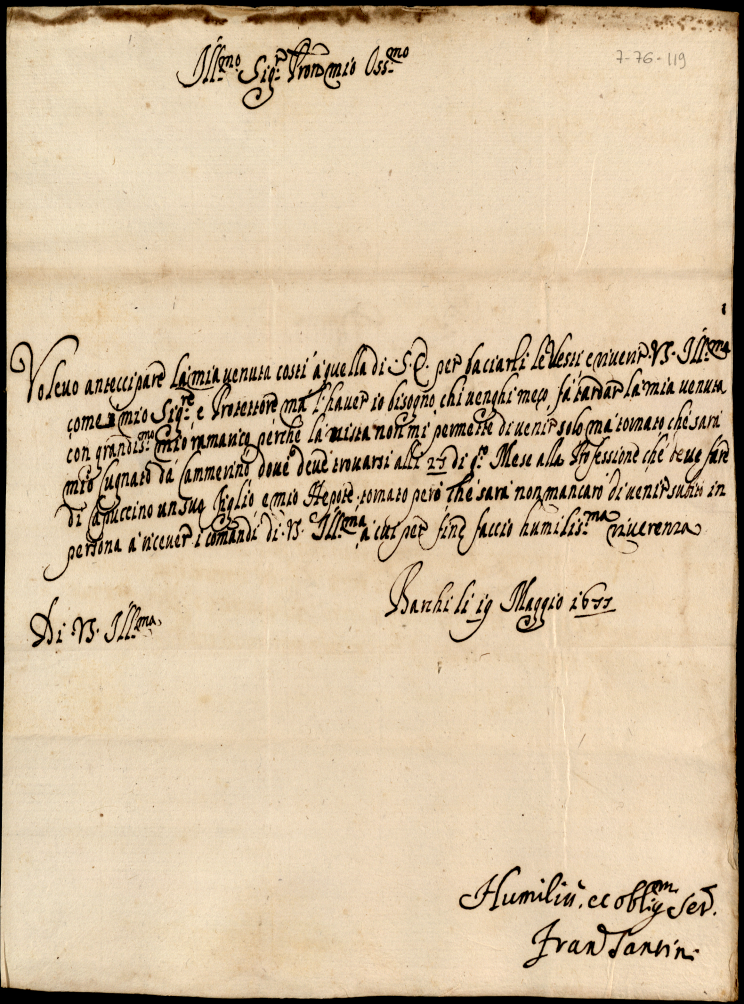 7-76-119
Ill.mo Sig.r Pron mio Oss.mo
Volevo antecipare la mia venuta costì à quella di S. E. per baciarli le Vesti e riverir V.S. Ill.ma
come mio Sig.re e Protettore mà l'haver io bisogno, chi venghi meco fà tardar la mia venuta
con grandis.mo mio ramarico perche la vista non mi permette di venir solo, mà tornato che sarà
mio Cugnato dà Cammerino dove deve trovarsi alli di q.o Mese alla Professione che deve fare
di Capuccino un suo figlio e mio Nepote tornato però che sarà non mancarò di venir subito in
persona à ricever i comandi di V.S. Ill.ma à cui per fine faccio humilis.ma riverenza
Barchi li 19 Maggio 1677
Di V.S. Ill.ma
Humiliss. et oblig.m Ser.
Fran